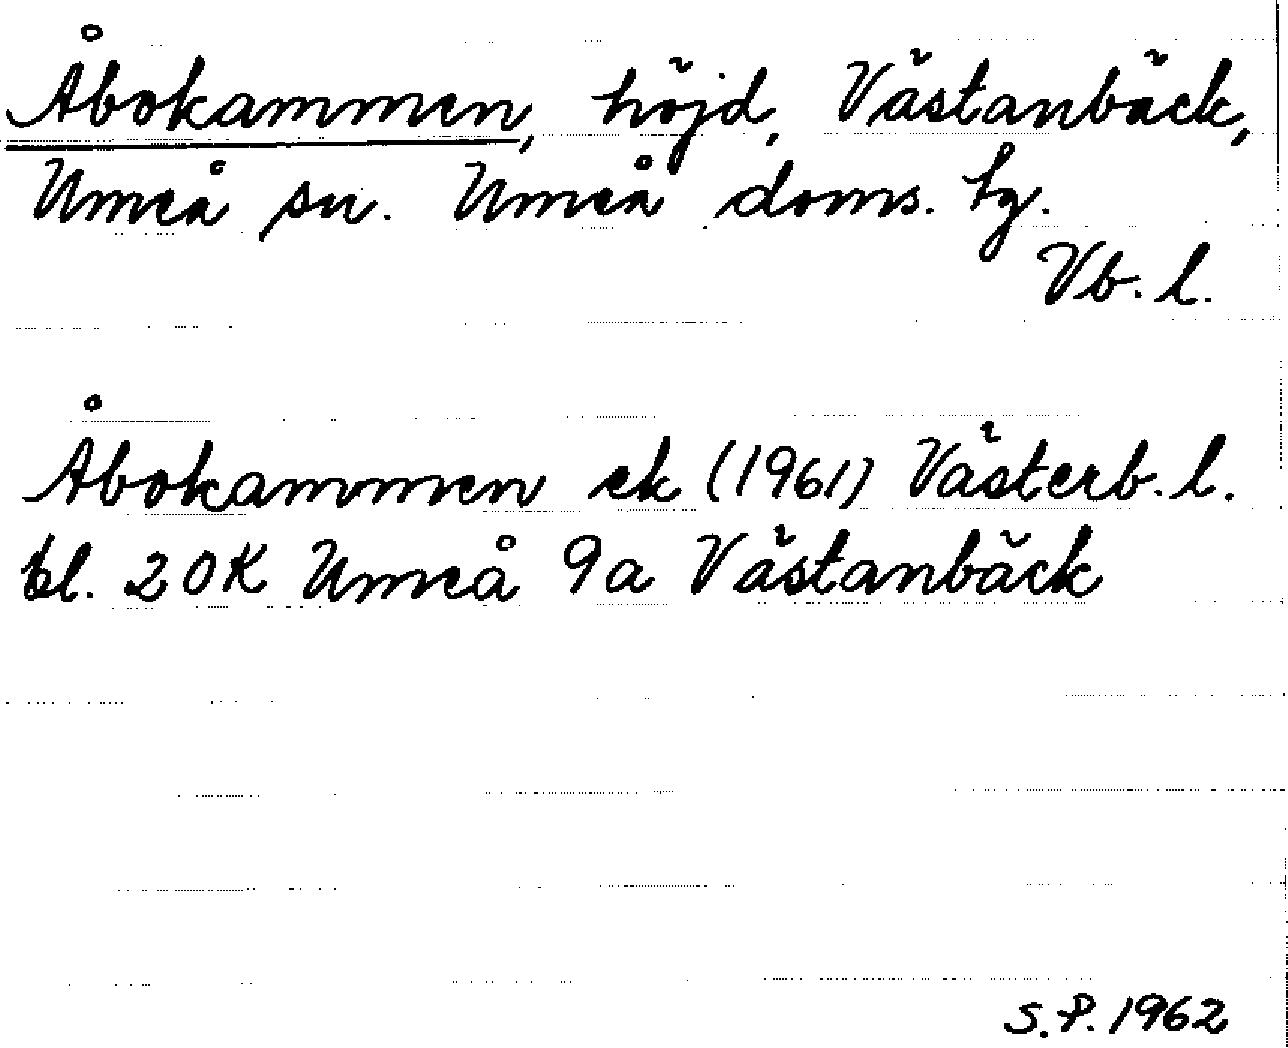 Åbokammen, höjd, Västanbäck,
Umeå sn. Umeå doms. tg.
Vb. l.
Åbokammen ek (1961) Västerb. l.
bl. 20K Umeå 9a Västanbäck
S.P. 1962